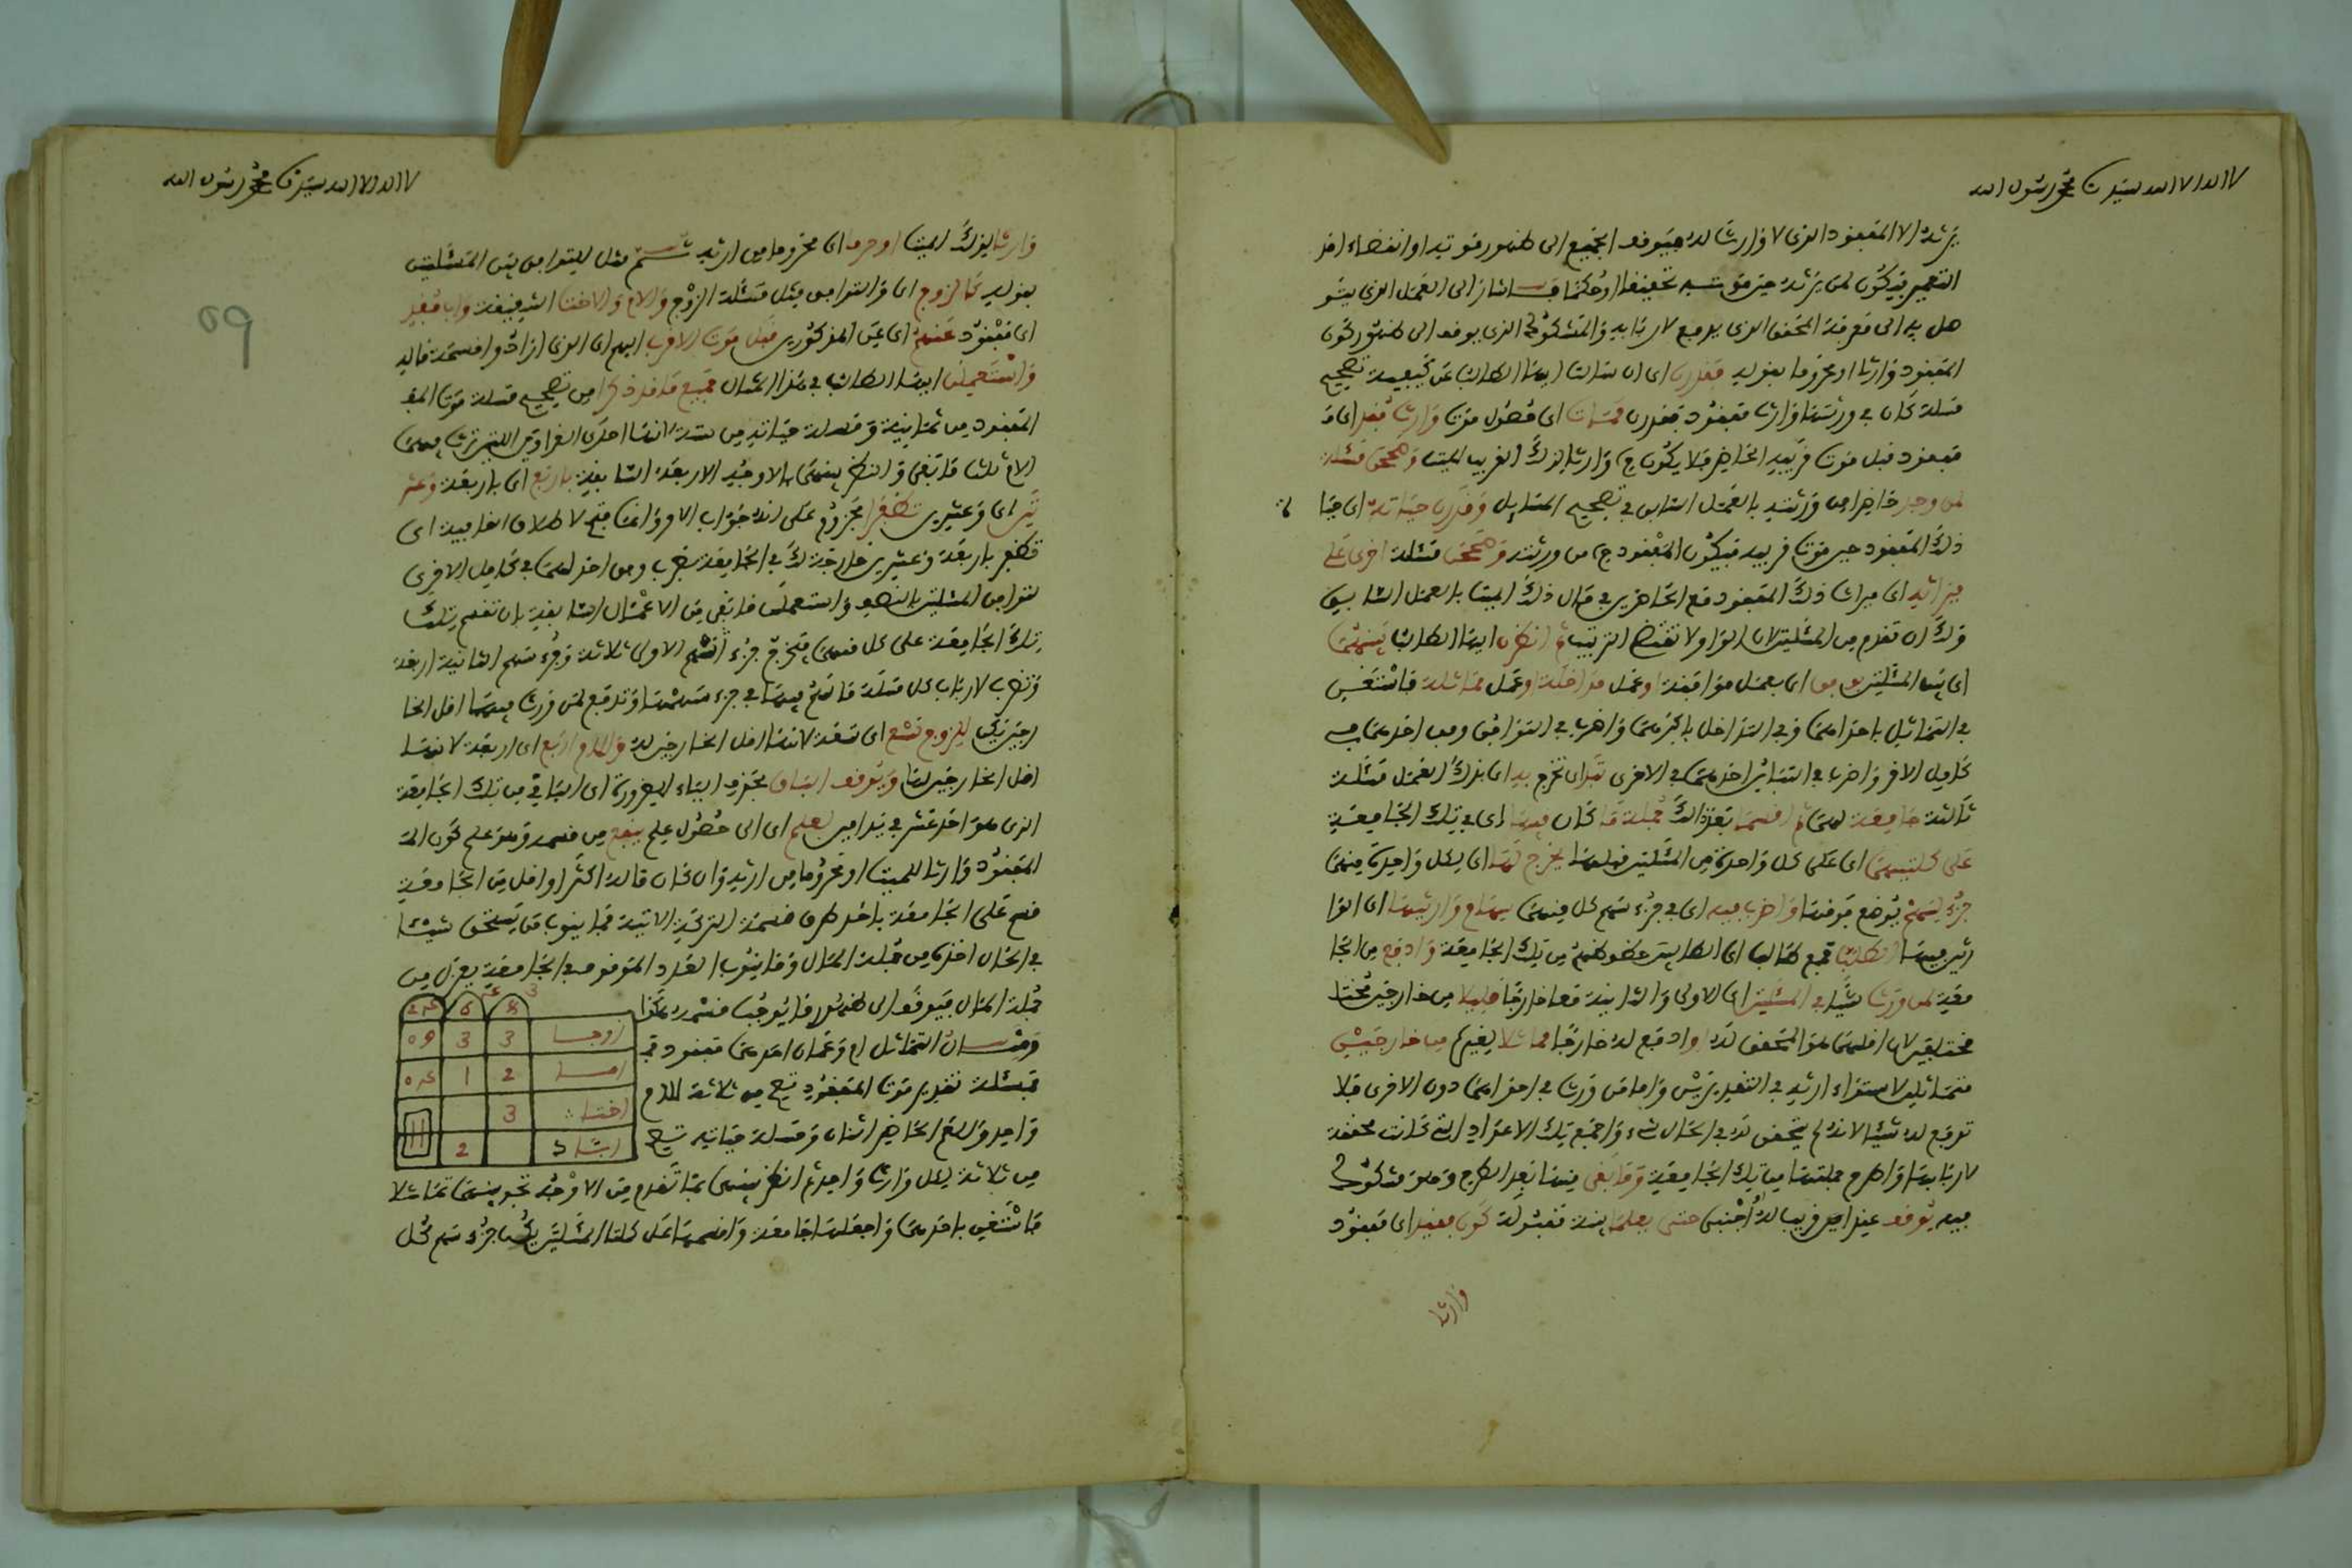 لا اله الا الله سيدنا محمد رسول الله
يرثه الا المفقود الذى لا وارث له فيوقف الجميع الى ظهور موته او انقضاء امد
التعمير فيكون لمن يرثه حين موته تحقيقا او حكما اشار الى العمل الذى يتو
صل به الى معرفة المحقق الذى يدفع لاربابه والمشكوك الذى يوقف الى ظهور كون
المفقود وارثا او محروما بقوله فقدرن اى ان سالت ايها الطالب عن كيفية تصحيح
مسالة كان فى ورثتها وارث مفقود فقدرن ممات اى حصول موت وارث فقد اى م
مفقود قبل موت قريبه الحاضر فلا يكون ح وارثا لذلك القريب الميت وصححن مسئلة
لمن وجد حاضرا من ورثته بالعمل السابق فى تصحيح المسايل وقدرن حياته اى حيا
ذلك المفقود حين موت قريبه فيكون المفقود ح من ورثته وصححن مسئلة اخرى على
ميراثه اى ميراث ذلك المفقود مع الحاضرين فى مال ذلك الميت بالعمل السابق
ولك ان تقدم من المسئلتين لان الواو لا تقتضى الترتيب ثم انظرن ايها الطالب بينهما
اى بين المسئلتين بوفق اى بعمل موافقة او عمل مداخلة او عمل مماثلة فاستغن
فى التماثل باحداهما وفى التداخل باكبرهما واضرب فى التوافق وفق احدهما فى
كامل الاخر واضرب فى التباين احدهما فى الاخرى تبد اى تخرج به اى بذلك العمل مسئلة
ثالثة جامعة لهما ثم اقسم بعد ذلك جملة ما كان فيها اى فى تلك الجامعة
على كلتيهما اى على كل واحدة من المسئلتين قبلها يخرج لها اى لكل واحدة منهما
جزء سهم يوضع فوقها واضرب فيه اى فى جزء سهم كل منهما سهام وارثيها اى الوا
رثين فيها الطلاب جمع طالب اى الطالبين حظوظهم من تلك الجامعة وادفع من الجا
معة لمن ورث شيئا فى المسئلتين اى الاولى والثانية معا خارجا قليلا من خارجين مختا
مختلفين لان اقلهما هو المحقق له او ادفع له خارجا مماثلا لغيره من خارجين
متماثلين لاستواء ارثه فى التقديرين واما من ورث فى احداهما دون الاخرى فلا
تدفع له شيئا لانه لم يتحقق له فى الحال شىء واجمع تلك الاعداد التى كانت محققة
لاربابها واطرح جملتها من تلك الجامعة وما بقى منها بعد الطرح وهو مشكوك
فيه يوقف عند امين قريب له او اجنبى حتى يعلما بينة مقبولة كون فقيد اى مفقود
وارثا
لا اله الا الله سيدنا محمد رسول الله
59
وارثا لذلك الميت او حرما اى محروما من ارثه ثم مثل للتوافق بين المسئلتين
بقوله كالزوج اى والتوافق مثل مسئلة الزوج والام والاخت الشقيقة واب فقيد
اى مفقود عنهم اى عن المذكورين قبل موت الاقرب اليهم اى الذى اراد وا قسمة ماله
واستعملن ايها الطالب فى هذا المثال جميع ما قد ذكرا من تصحيح مسلة موت المفـ
المفقود من ثمانية ومسلة حياته من ستة لانها احدى الغراوين اللتين ترث فيهما
الام ثلث ما بقى والنظر بينهما بالاوجه الاربعة السابقة باربع اى باربعة وعشـ
رين اى وعشرين تظفرا مجزوم على انه جواب الامر وانما فتح لاطلاق القافية اى
تظفر باربعة وعشرين خارجة لك فى الجامعة بضرب وفق احداهما فى كامل الاخرى
لتوافق المسئلتين بالنصف واستعملن ما بقى من الاعمال السابقة بان تقسم تلك
تلك الجامعة على كل منهما فيخرج جزء اسهم الاولى ثلاثة وجزء سهم الثانية اربعة
وتضرب لارباب كل مسئلة ما صح فيها فى جزء سهمها وتدفع لمن ورث فيهما اقل الخا
رجين يكن للزوج تسع اى تسعة لانها اقل الخارجين له وللام اربع اى اربعة لانها
اقل الخارجين لها ويوقف الباق بحذف الياء للضرورة اى الباقى من تلك الجامعة
الذى هو احد عشر فى يد امين لعلم اى الى حصول علم ينفع من قسمه وهو علم كون الم
المفقود وارثا للميت او محروما من ارثه وان كان ماله اكثر او اقل من الجامعة
قسم على الجامعة باحد طرق قسمة التركة الاتية فما ينوب من يستحق شيئا
فى الحال اخذه من جملة المال وما ينوب العدد الموقوف فى الجامعة يعزل من
جملة المال فيوقف الى ظهور ما يوجب قسمه هكذا
ومثال التماثل ام وعمان احدهما مفقود فمـ
فمسئلة تقدير موت المفقود تصح من ثلاثة للام
واحد وللعم الحاضر اثنان ومسلة حياته تصح
من ثلاثة لكل وارث واحد ثم انظر بينهما بما تقدم من الاوجه تجد بينهما تماثلا
فاستغن باحدهما واجعلها جامعة واقسمها على كلتا المسئلتين يكن جزء سهم كل
3 4
8 6 24
زوجـا 3 3 09
امـا 2 1 04
اختـا 3
ابـا 2 11